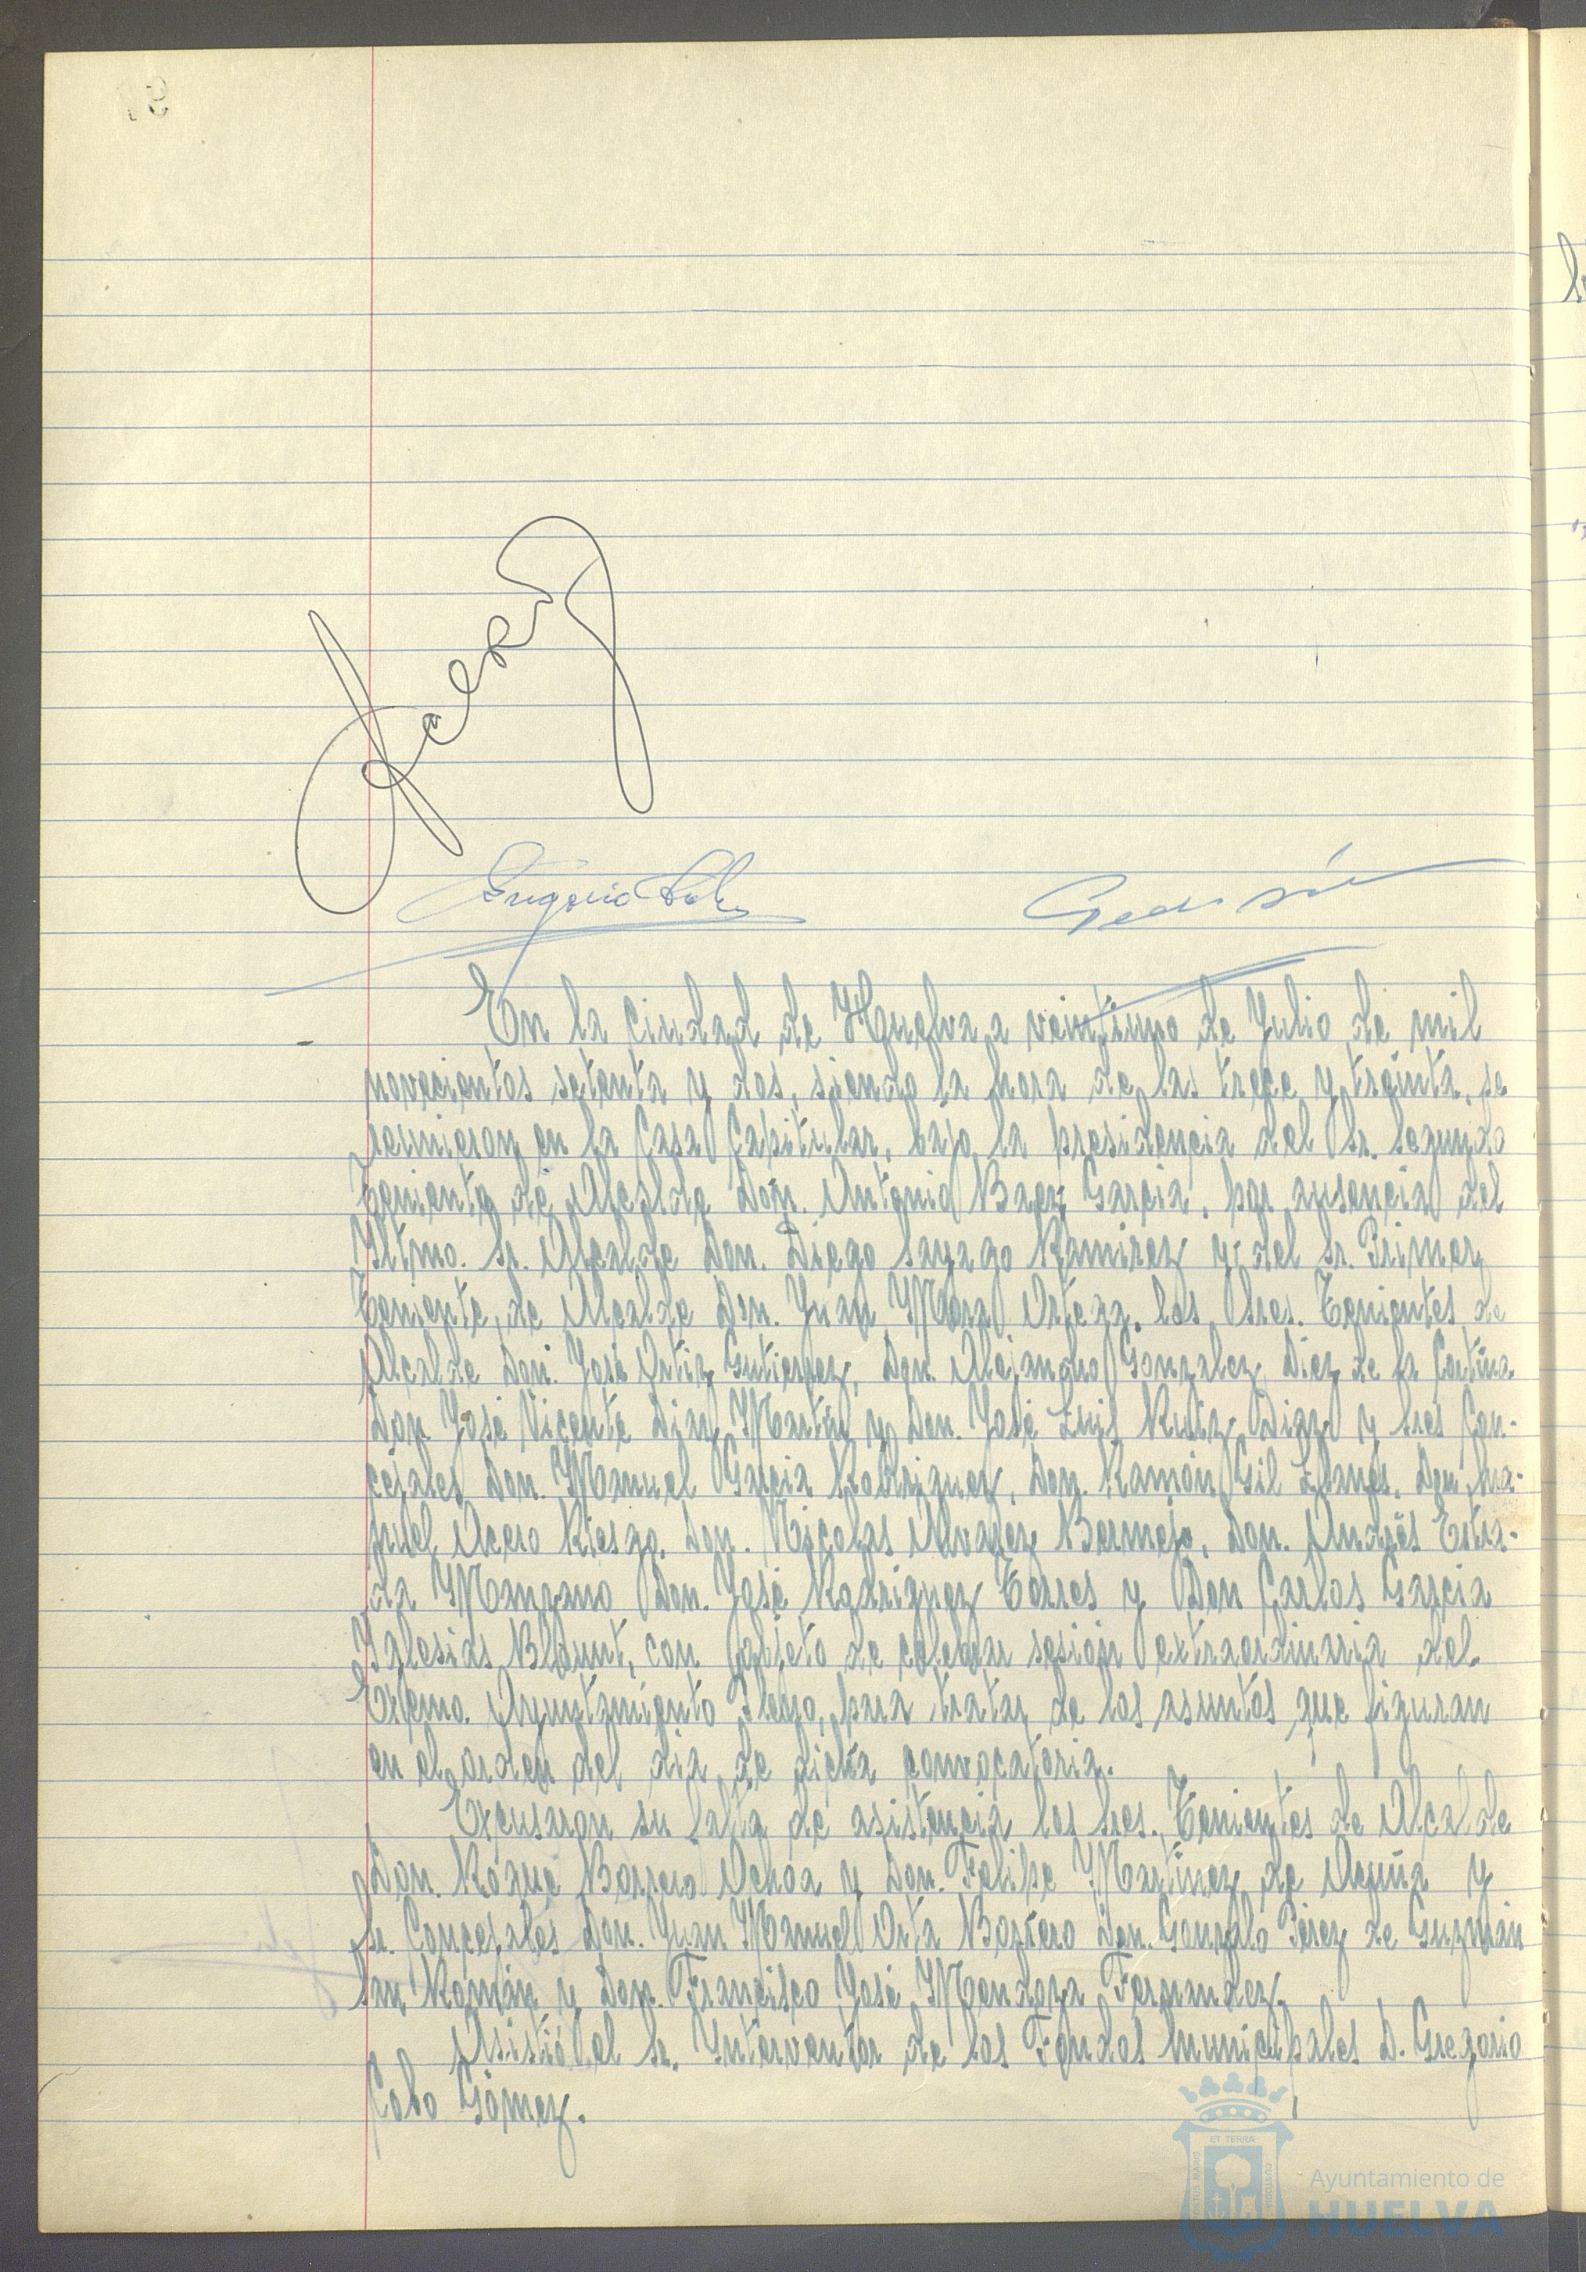 Eugenio
En la Ciudad de Huelva a veintiuno de Julio de mil
novecientos setenta y dos, siendo la hora de las trece y treinta, se
reunieron en la Casa Capitular, bajo la presidencia del Sr. Segundo
Teniente de Alcalde Don. Antonio Baez Garcia, por ausencia del
Iltmo. Sr. Alcalde Don. Diego Sayago Ramirez y del Sr. Primer
Teniente de Alcalde Don. Juan Mora Ortega, los Sres. Tenientes de
Alcalde Don. José Ortiz Gutierrez, Don. Alejandro Gonzalez Diez de la Cortina
Don José Vicente Diaz Martin y Don. José Luis Ruiz Diaz y Sres Con-
cejales Don. Manuel Garcia Rodriguez, Don. Ramón Gil Llanes, Don Ma-
nuel Acero Riesgo, Don. Nicolas Alvarez Bermejo, Don. Andrés Estra-
da Manzano Don. José Rodriguez Torres y Don Carlos Garcia
Iglesias Blount, con objeto de celebrar sesión extraordinaria del
Excmo. Ayuntamiento Pleno, para tratar de los asuntos que figuran
en el orden del dia de dicha convocatoria.
Excusaron su falta de asistencia los Sres. Tenientes de Alcalde
Don. Roque Borrero Ochoa y Don. Felipe Martinez de Acuña y
Sr. Concejales Don. Juan Manuel Orta Borrero Don. Gonzalo Pérez de Guzmán
San Román y Don. Francisco José Mendoza Fernandez
Asistió el Sr. Interventor de los Fondos Municipales D. Gregorio
Cobo Gómez.
ET TERRA
CUSTODIA
PORTUS MARIS
Ayuntamiento de
HUELVA